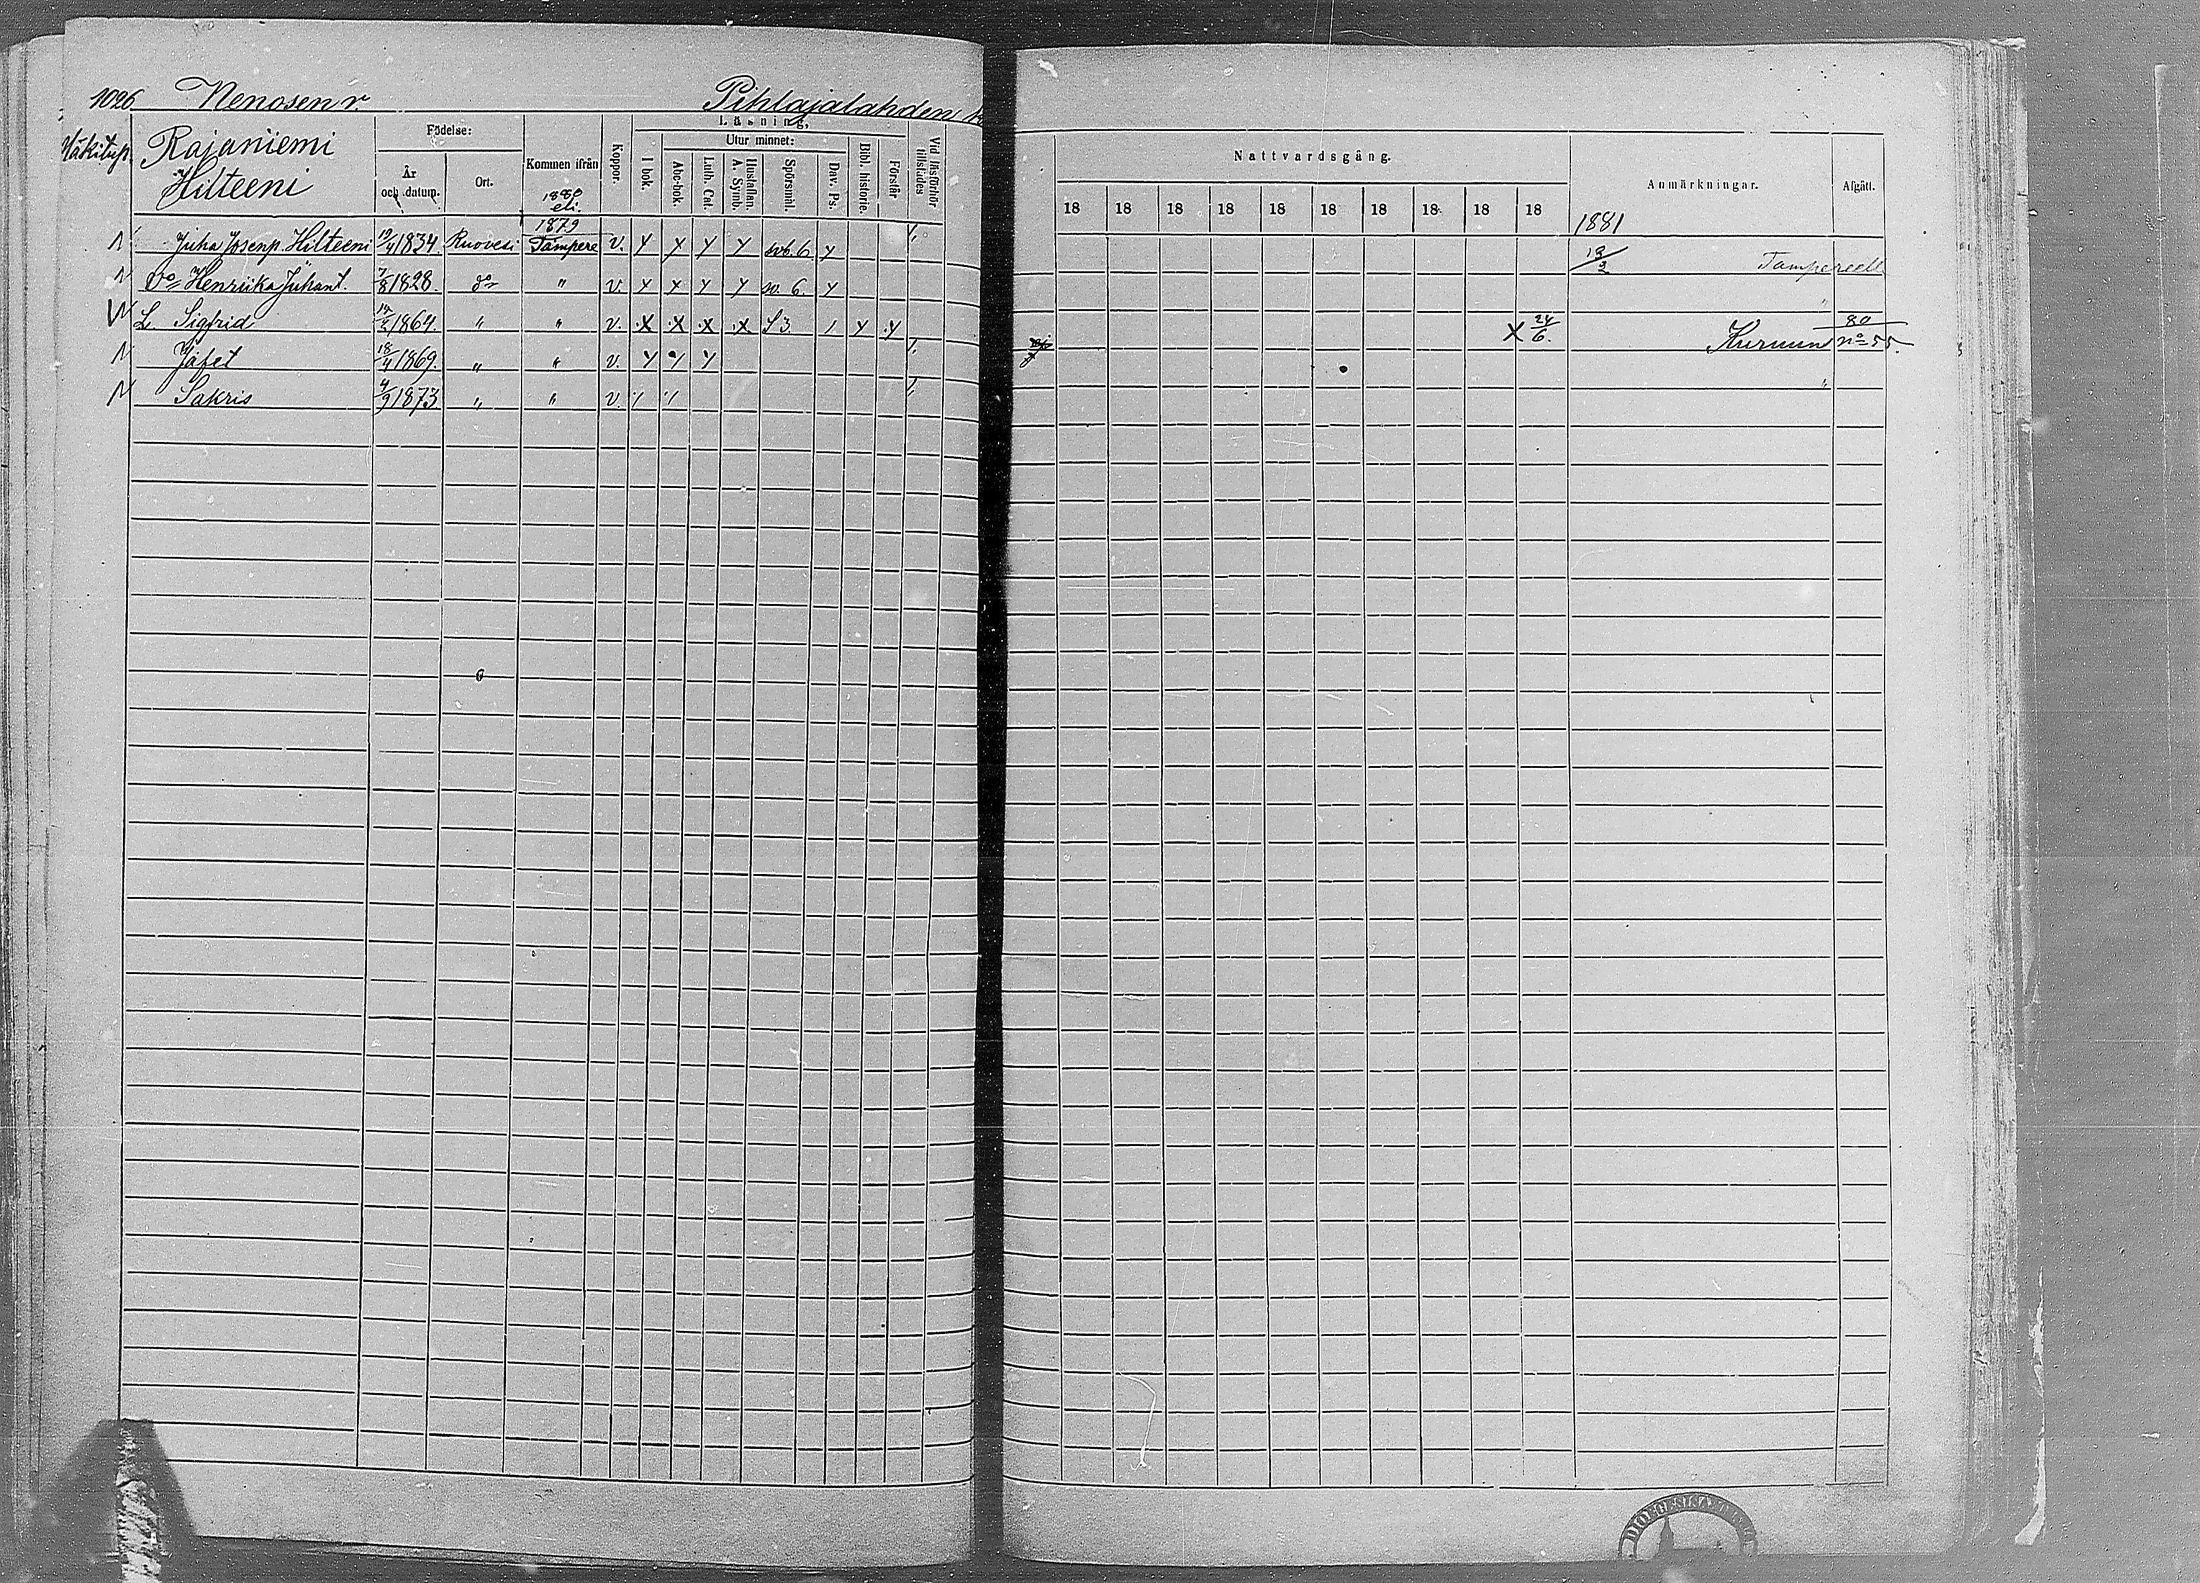 1026 Nenosen r. Pihlajalahden k
Mäkitup. Rajaniemi
Hilteeni
Födelse:
År och datum.
Ort.
Kommen ifrån
1880 eli 1879
Koppor.
Läsning,
I bok.
Utur minnet:
Abc-bok.
Luth. Cat.
Hustaflan. A. Symb.
Spörsmål.
Dav. Ps.
Bibl. historie.
Förstår
Vid läsförhör tillstädes
Nattvardsgång.
18 18 18 18 18 18 18 18 18 18
Anmärkningar.
Afgått.
1881
Juha Josenp. Hilteeni 19/4 1834. Ruovesi Tampere v. y y y y sv. 6 y 18/2 Tampereell
Vo Henriika Juhant. 7/8 1828. do " v. y y y y sv. 6. y "
L. Sigfrid 1864. " " v. x x x x S 3. / y y x 24/6. Kuruun 80 no 55.
Jafet 18/4 1869. " " v. y y y
Sakris 4/9 1873 " " v. "